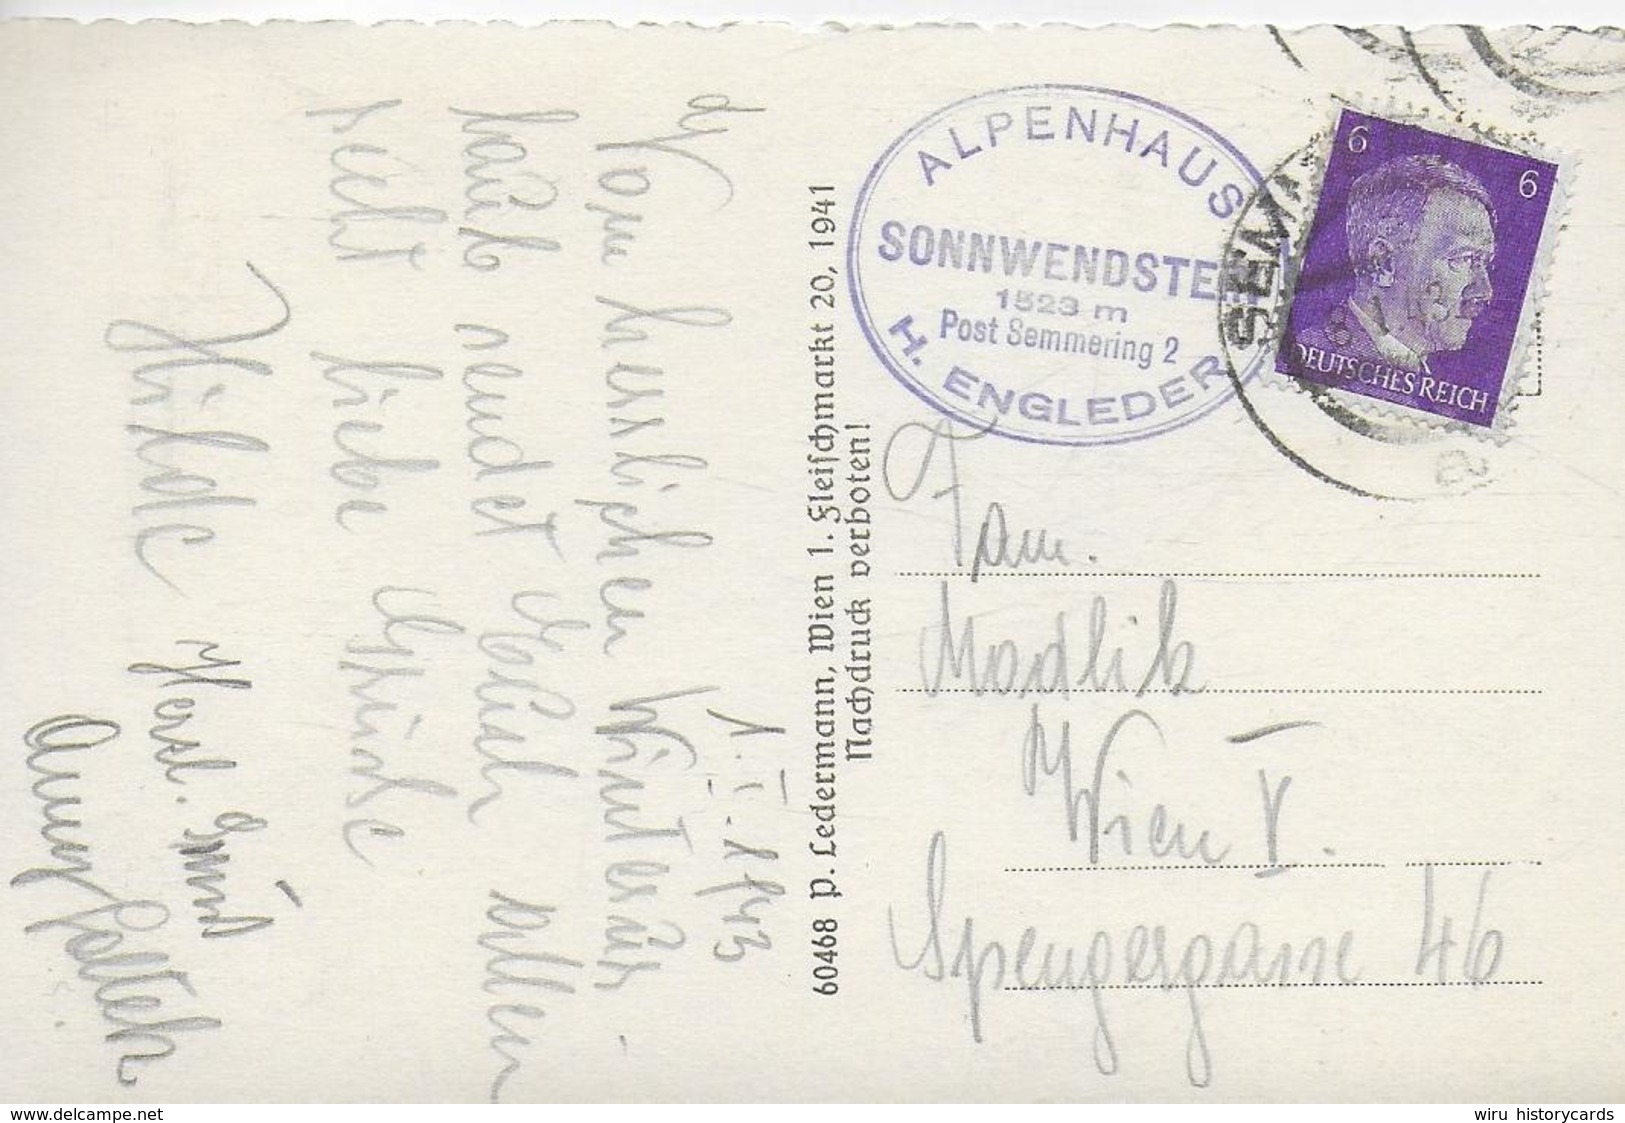 1. I. 1943
Vom herrlichen Winterur
laub sendet Euch allen
recht liebe Grüsse
Hilde
Herzl. Gruß
Anny
ALPENHAUS
SONNWENDSTEIN
1523 m
Post Semmering 2
H. ENGLEDER
6
6
DEUTSCHES REICH
SEM
60468 P. Ledermann, Wien 1. Fleischmarkt 20, 1941
Nachdruck verboten!
Fam.
Modlik
Wien V.
Spengergasse 46
www.delcampe.net
wiru historycards